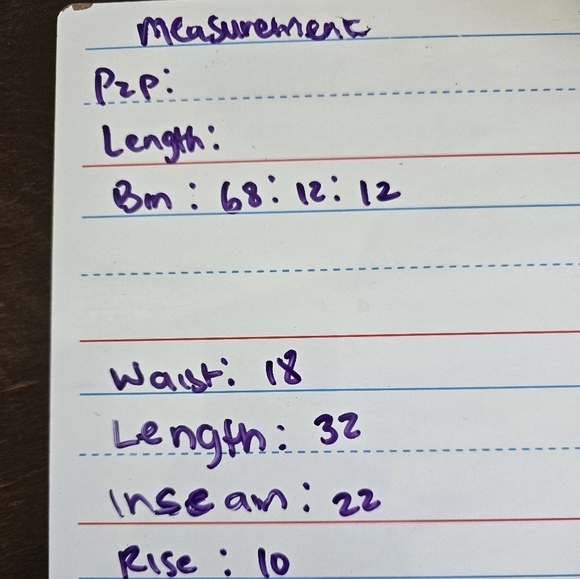 Measurement
P2P:
Length:
Bm: 68: 12: 12
Waist: 18
Length: 32
Insean: 22
Rise: 10